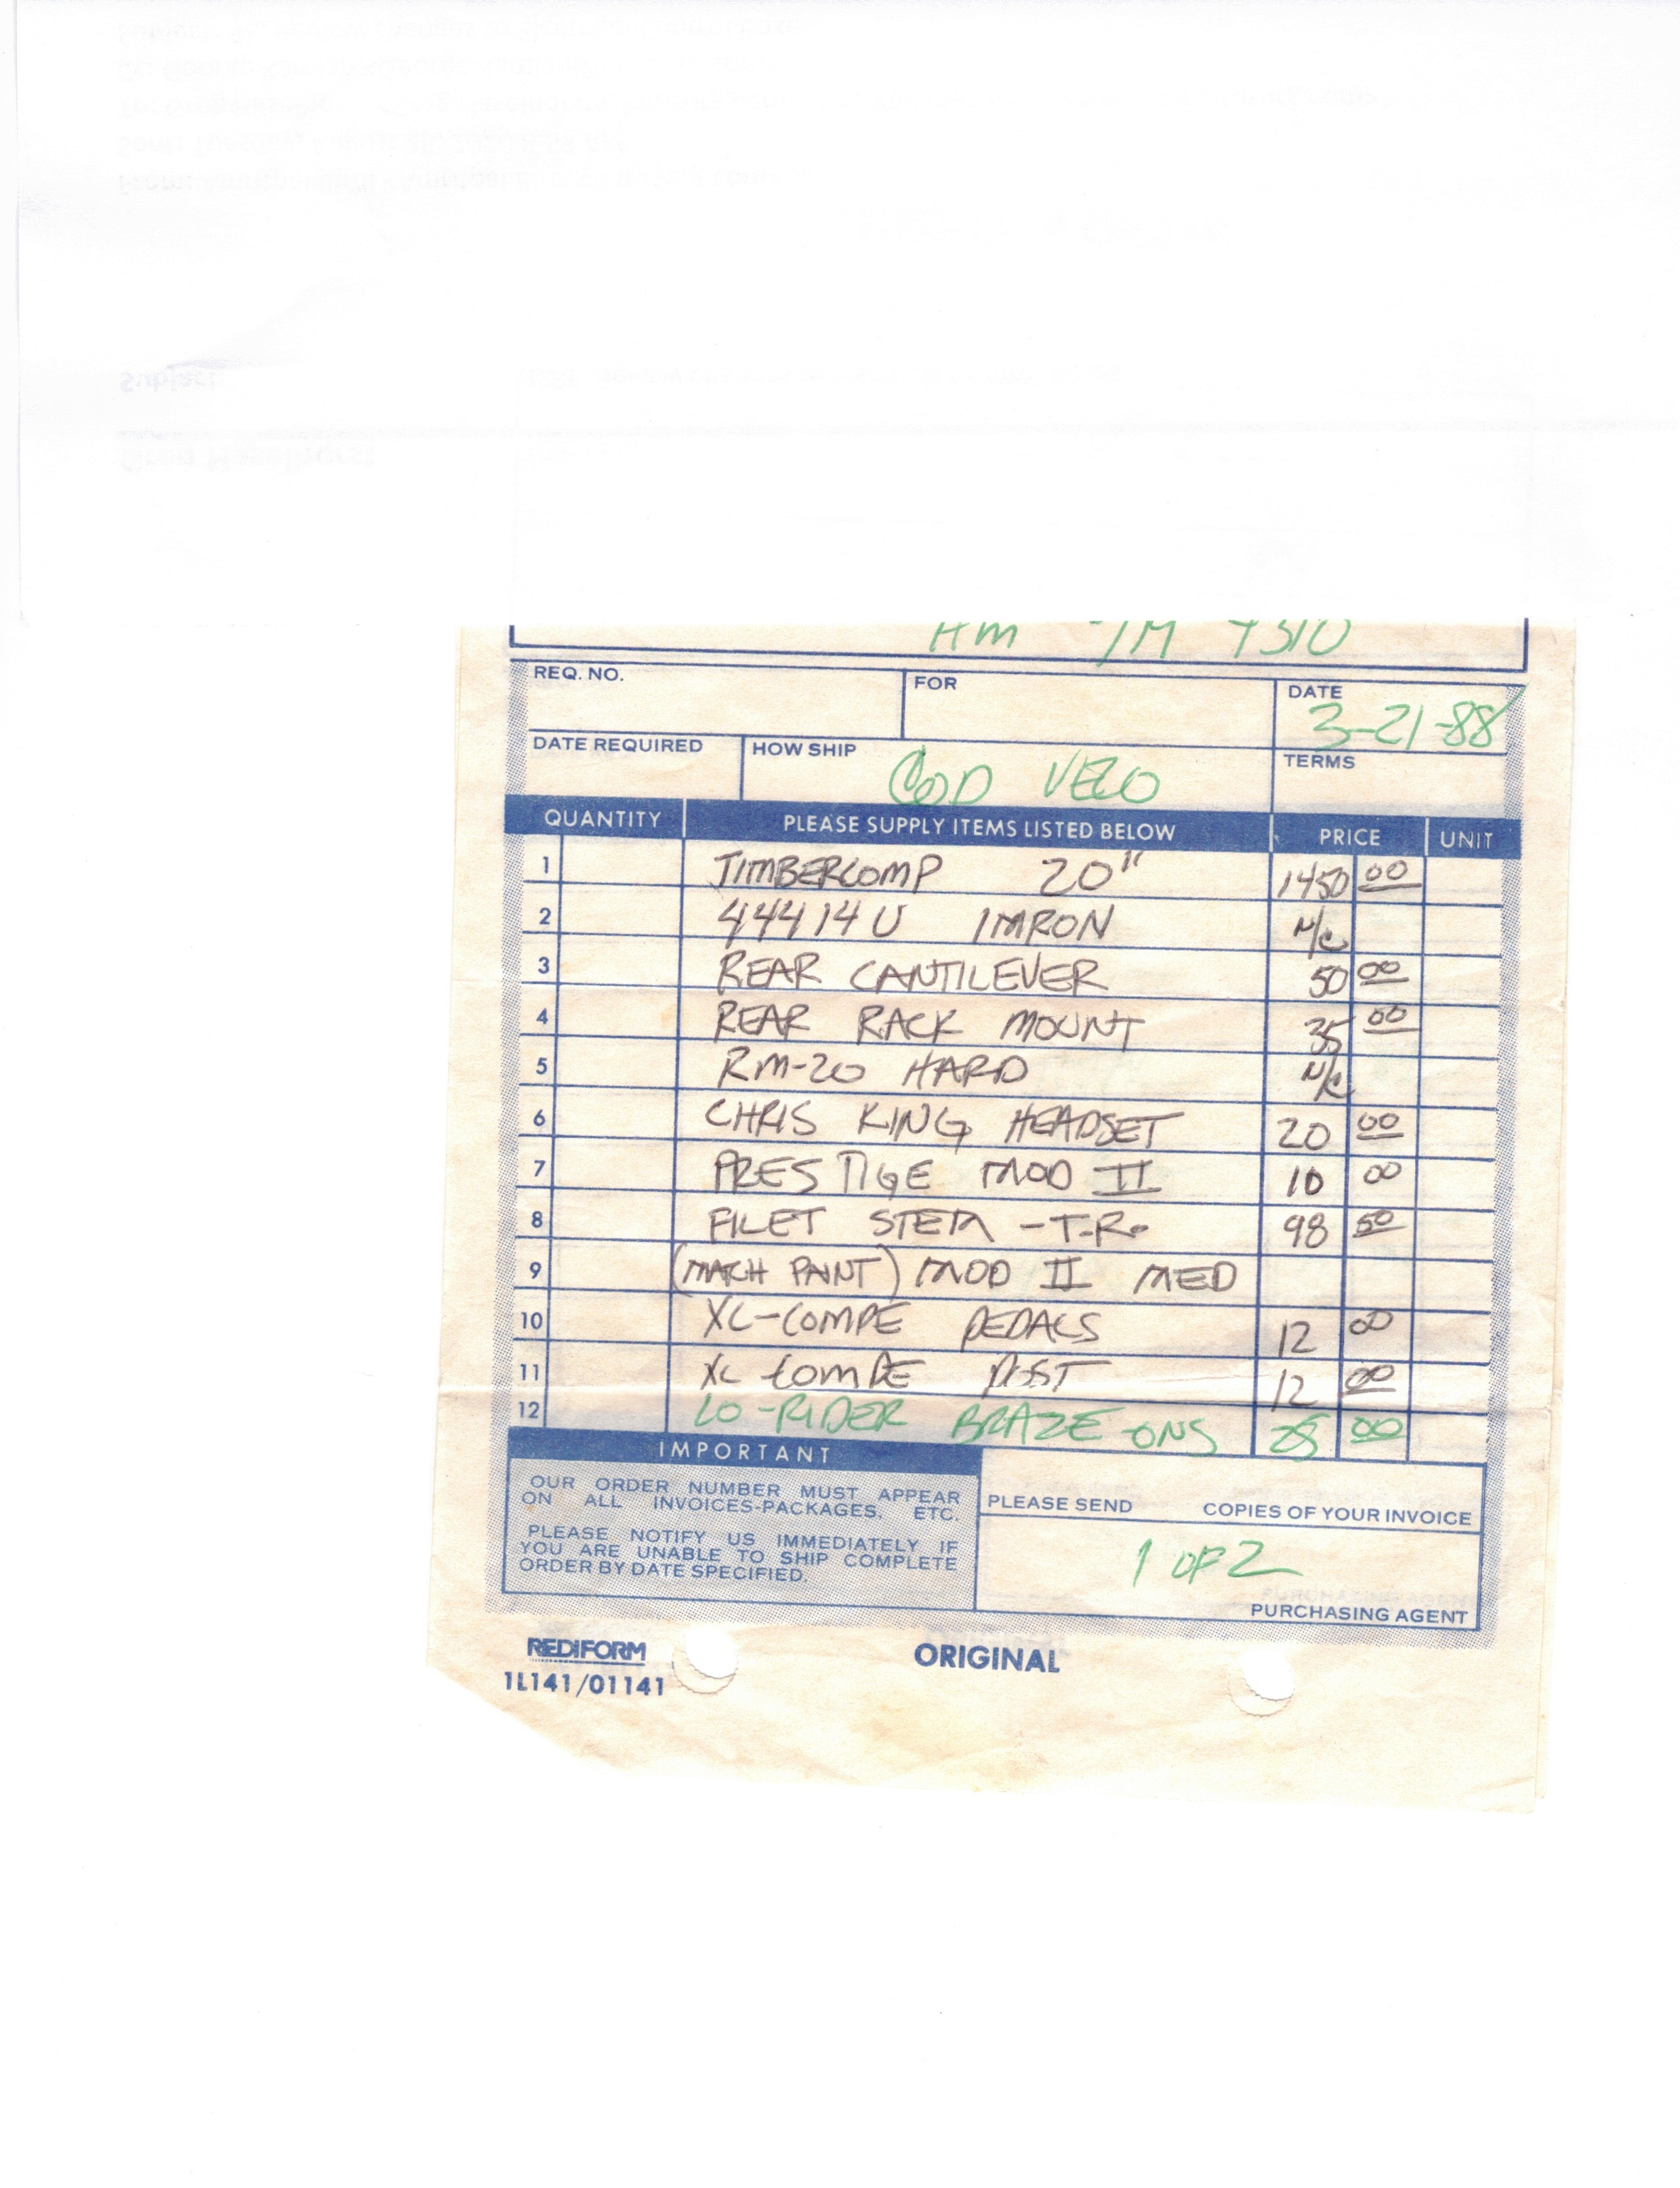 REQ. NO. FOR DATE
3-21-88
DATE REQUIRED HOW SHIP TERMS
COD VELO
QUANTITY PLEASE SUPPLY ITEMS LISTED BELOW PRICE UNIT
1 TIMBERCOMP 20" 1450 00
2 44414U IMRON N/C
3 REAR CANTILEVER 50 00
4 REAR RACK MOUNT 35 00
5 RM-20 HARD N/C
6 CHRIS KING HEADSET 20 00
7 PRESTIGE MOD II 10 00
8 FILET STEM -T.R. 98 50
9 (MATCH PAINT) MOD II MED
10 XC-COMPE PEDALS 12 00
11 XC COMPE POST 12 00
12 LO-RIDER BRAZE ONS 25 00
IMPORTANT
OUR ORDER NUMBER MUST APPEAR
ON ALL INVOICES-PACKAGES, ETC.
PLEASE NOTIFY US IMMEDIATELY IF
YOU ARE UNABLE TO SHIP COMPLETE
ORDER BY DATE SPECIFIED.
PLEASE SEND COPIES OF YOUR INVOICE
1 OF 2
PURCHASING AGENT
REDIFORM
1L141/01141
ORIGINAL